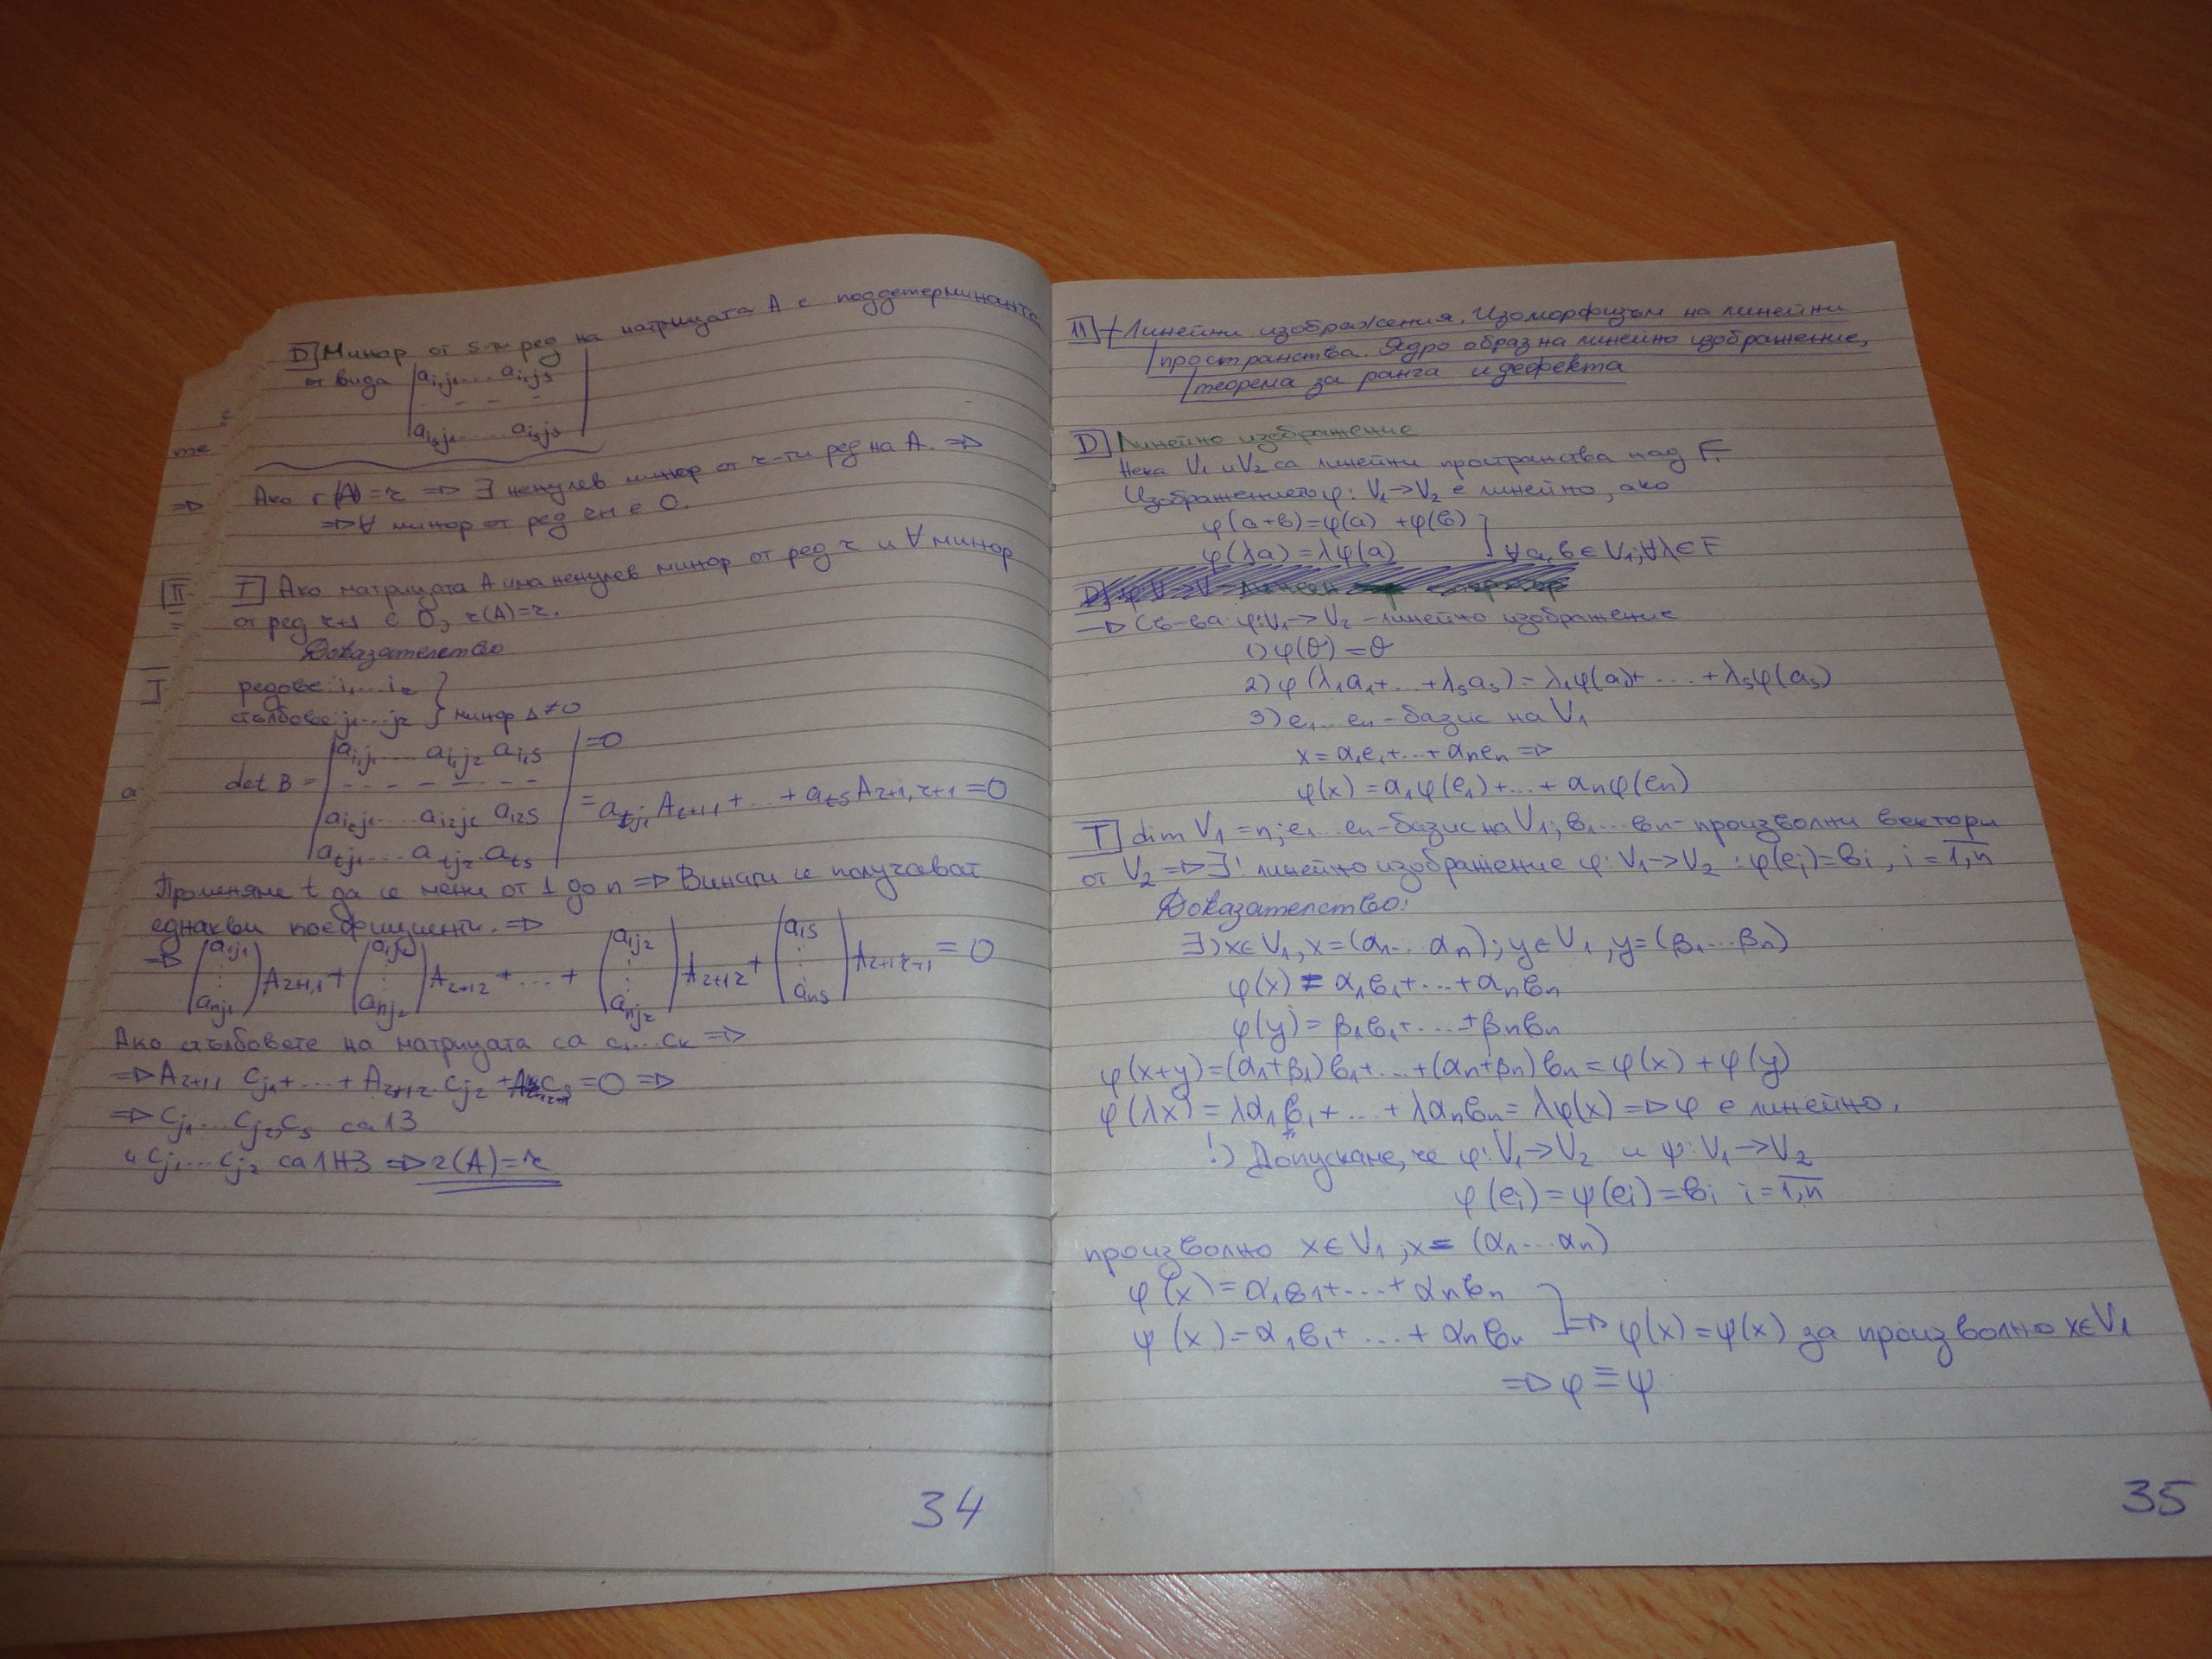 D Минор от s-ти ред на матрицата A е поддетерминанта
от вида | ai₁j₁ .... ai₁js |
- - - -
| aisj₁ ..... aisjs |
те
Ако r(A)=r => ∃ ненулев минор от r-ти ред на A. =>
=> ∀ минор от ред r+1 е 0.
II T Ако матрицата A има ненулев минор от ред r и ∀ минор
от ред r+1 е 0, r(A)=r.
Доказателство
редове: i₁...ir }
стълбове: j₁...jr } минор Δ≠0
det B = | ai₁j₁ .... ai₁jr ai₁s | =0
- - - - - - -
| airj₁ .... airjr airs | = atj₁Ar+1,1 + ... + atsAr+1,r+1 = 0
| atj₁ .... atjr ats |
Променяме t да се мени от 1 до n => Винаги се получават
еднакви коефициенти. =>
=> (a1j₁ ⋮ anj₁) Ar+1,1 + (a1j₂ ⋮ anj₂) Ar+12 + ... + (a1jr ⋮ anjr) Ar+1r + (a1s ⋮ ans) Ar+1r+1 = 0
Ако стълбовете на матрицата са c₁...ck =>
=> Ar+11 cj₁+...+Ar+1r cjr + Ar+1r+1 cs = 0 =>
=> cj₁...cjr,cs са ЛЗ
и cj₁...cjr са ЛНЗ => r(A)=r
34
11 Линейни изображения. Изоморфизъм на линейни
пространства. Ядро образ на линейно изображение,
теорема за ранга и дефекта
D Линейно изображение
Нека V₁ и V₂ са линейни пространства над F.
Изображението φ: V₁→V₂ е линейно, ако
φ(a+b)=φ(a)+φ(b)
φ(λa)=λφ(a) } ∀a,b∈V₁; ∀λ∈F
=> Св-ва: φ:V₁→V₂ – линейно изображение
1) φ(θ)=θ
2) φ(λ₁a₁+...+λsas)=λ₁φ(a₁)+...+λsφ(as)
3) e₁...en – базис на V₁
x=α₁e₁+...+αnen =>
φ(x)=α₁φ(e₁)+...+αnφ(en)
T dim V₁=n; e₁...en – базис на V₁; b₁...bn – произволни вектори
от V₂ => ∃! линейно изображение φ: V₁→V₂ : φ(ei)=bi, i=1,n
Доказателство:
∃) x∈V₁, x=(α₁...αn); y∈V₁, y=(β₁...βn)
φ(x)=α₁b₁+...+αnbn
φ(y)=β₁b₁+...+βnbn
φ(x+y)=(α₁+β₁)b₁+...+(αn+βn)bn=φ(x)+φ(y)
φ(λx)=λα₁b₁+...+λαnbn=λφ(x) => φ е линейно.
!) Допускаме, че φ: V₁→V₂ и ψ: V₁→V₂
φ(ei)=ψ(ei)=bi i=1,n
произволно x∈V₁; x=(α₁...αn)
φ(x)=α₁b₁+...+αnbn
ψ(x)=α₁b₁+...+αnbn } => φ(x)=ψ(x) за произволно x∈V₁
=> φ≡ψ
35